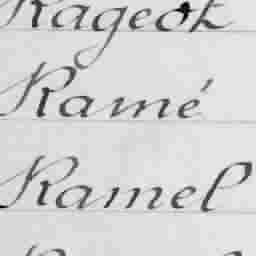 Rageot
Ramé
Ramel